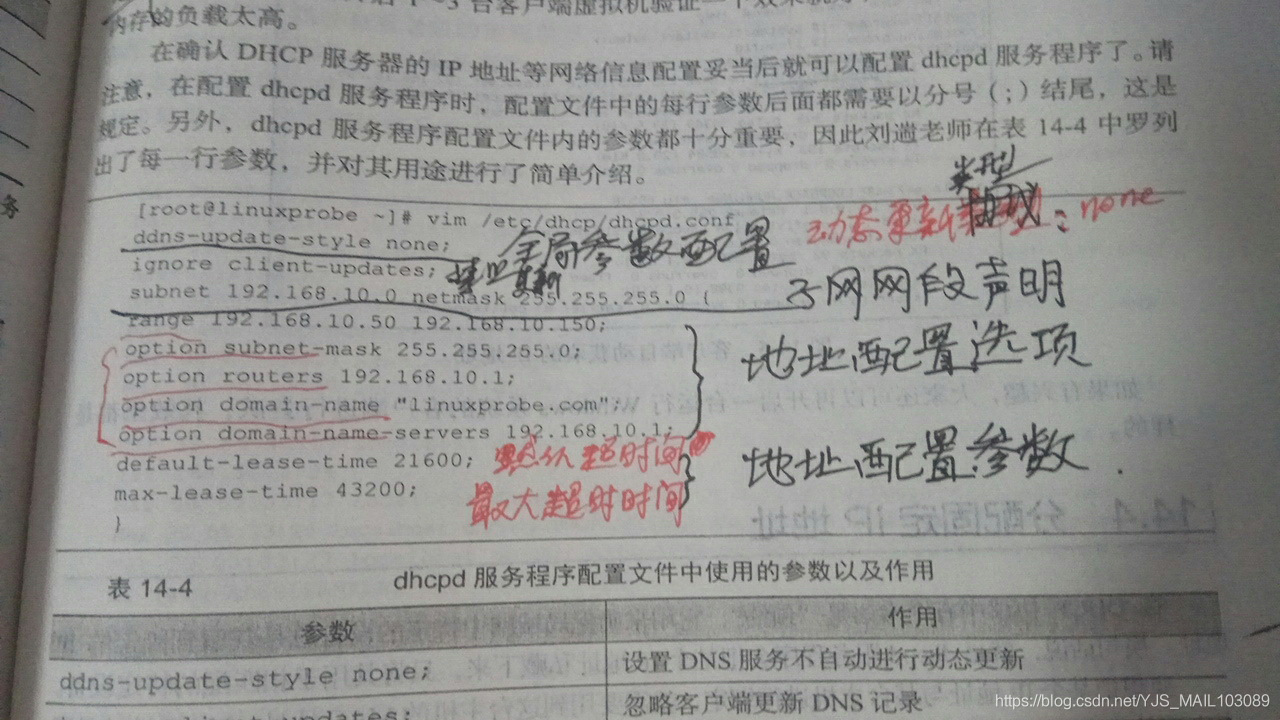 台客户端虚拟机验证一个效果
内存的负载太高。
在确认 DHCP 服务器的 IP 地址等网络信息配置妥当后就可以配置 dhcpd 服务程序了。请
注意，在配置 dhcpd 服务程序时，配置文件中的每行参数后面都需要以分号（;）结尾，这是
规定。另外，dhcpd 服务程序配置文件内的参数都十分重要，因此刘遄老师在表 14-4 中罗列
出了每一行参数，并对其用途进行了简单介绍。
务
类型
[root@linuxprobe ~]# vim /etc/dhcp/dhcpd.conf
动态更新 : none
ddns-update-style none;
全局参数配置
ignore client-updates;
更新
subnet 192.168.10.0 netmask 255.255.255.0 {
子网网段声明
range 192.168.10.50 192.168.10.150;
option subnet-mask 255.255.255.0;
地址配置选项
option routers 192.168.10.1;
option domain-name "linuxprobe.com";
option domain-name-servers 192.168.10.1;
地址配置参数.
default-lease-time 21600;
默认超时间
max-lease-time 43200;
最大超时时间
}
表 14-4
dhcpd 服务程序配置文件中使用的参数以及作用
参数 作用
ddns-update-style none; 设置 DNS 服务不自动进行动态更新
忽略客户端更新 DNS 记录
https://blog.csdn.net/YJS_MAIL103089